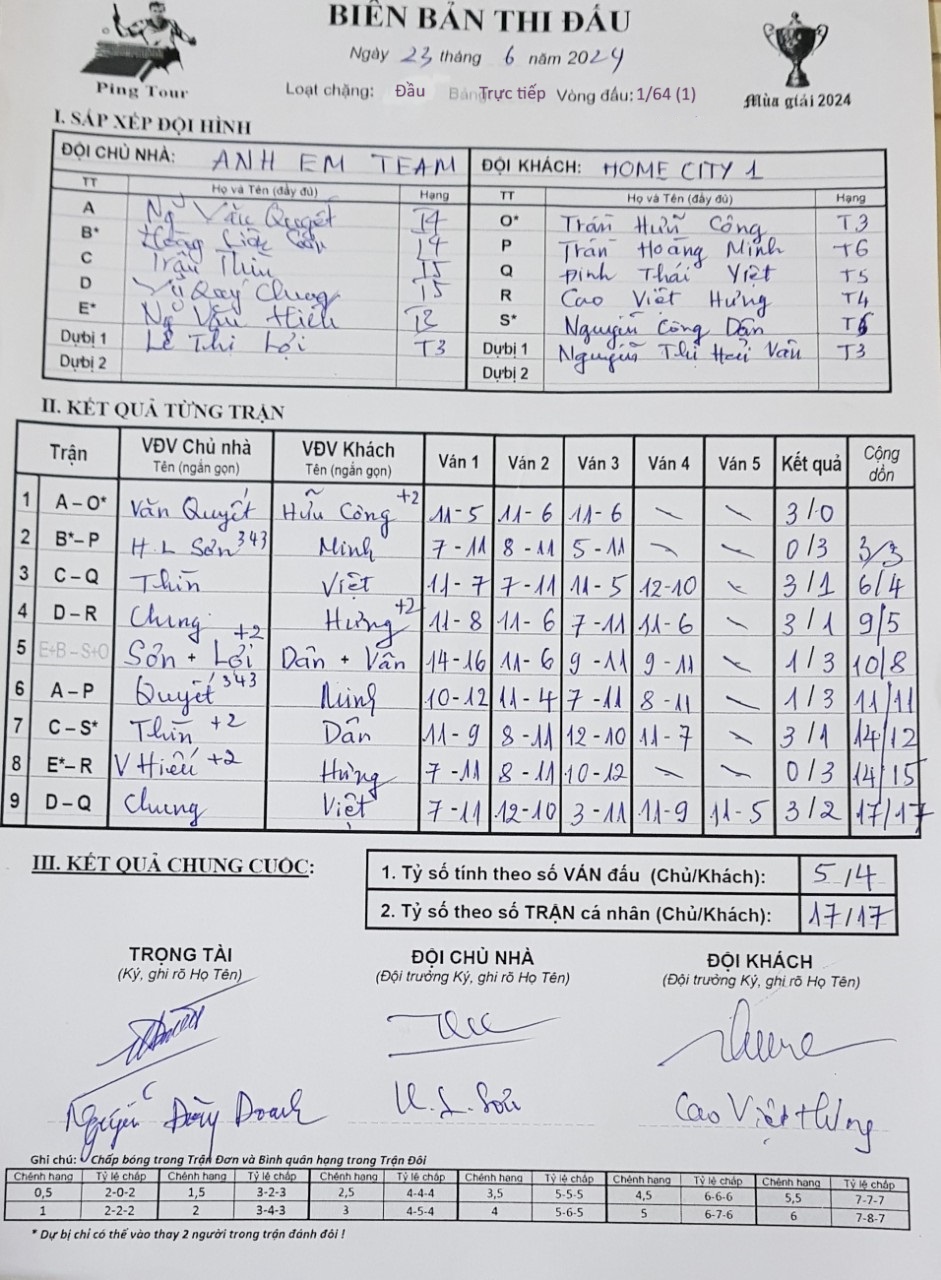 BIÊN BẢN THI ĐẤU
Ngày 23 tháng 6 năm 2024
Ping Tour
Loạt chặng: Đầu Bảng Trực tiếp Vòng đấu: 1/64 (1)
Mùa giải 2024
I. SẮP XẾP ĐỘI HÌNH
ĐỘI CHỦ NHÀ: ANH EM TEAM ĐỘI KHÁCH: HOME CITY 1
TT Họ và Tên (đầy đủ) Hạng TT Họ và Tên (đầy đủ) Hạng
A Ng Văn Quyết T4 O* Trần Hữu Công T3
B* Hoàng Sơn T4 P Trần Hoàng Minh T6
C Trần Thìn T5 Q Đinh Thái Việt T5
D Vũ Quý Chung T5 R Cao Việt Hưng T4
E* Ng Văn Hiếu S* Nguyễn Công Dân T6
Dự bị 1 Lê Thi Lợi T3 Dự bị 1 Nguyễn Thị Hải Vân T3
Dự bị 2 Dự bị 2
II. KẾT QUẢ TỪNG TRẬN
Trận VĐV Chủ nhà Tên (ngắn gọn) VĐV Khách Tên (ngắn gọn) Ván 1 Ván 2 Ván 3 Ván 4 Ván 5 Kết quả Cộng dồn
1 A – O* Văn Quyết Hữu Công +2 11-5 11-6 11-6 \ \ 3/0
2 B* – P H L Sơn 343 Minh 7-11 8-11 5-11 \ \ 0/3 3/3
3 C – Q Thìn Việt 11-7 7-11 11-5 12-10 \ 3/1 6/4
4 D – R Chung Hưng +2 11-8 11-6 7-11 11-6 \ 3/1 9/5
5 E+B – S+O Sơn + Lợi +2 Dân + Vân 14-16 11-6 9-11 9-11 \ 1/3 10/8
6 A – P Quyết 343 Minh 10-12 11-4 7-11 8-11 \ 1/3 11/11
7 C – S* Thìn +2 Dân 11-9 8-11 12-10 11-7 \ 3/1 14/12
8 E* – R V Hiếu +2 Hưng 7-11 8-11 10-12 \ \ 0/3 14/15
9 D – Q Chung Việt 7-11 12-10 3-11 11-9 11-5 3/2 17/17
III. KẾT QUẢ CHUNG CUỘC:
1. Tỷ số tính theo số VÁN đấu (Chủ/Khách): 5/4
2. Tỷ số theo số TRẬN cá nhân (Chủ/Khách): 17/17
TRỌNG TÀI ĐỘI CHỦ NHÀ ĐỘI KHÁCH
(Ký, ghi rõ Họ Tên) (Đội trưởng Ký, ghi rõ Họ Tên) (Đội trưởng Ký, ghi rõ Họ Tên)
Nguyễn Doanh H.L.Sơn Cao Việt Hưng
Ghi chú: Chấp bóng trong Trận Đơn và Bình quân hạng trong Trận Đôi
Chênh hạng Tỷ lệ chấp Chênh hạng Tỷ lệ chấp Chênh hạng Tỷ lệ chấp Chênh hạng Tỷ lệ chấp Chênh hạng Tỷ lệ chấp Chênh hạng Tỷ lệ chấp
0,5 2-0-2 1,5 3-2-3 2,5 4-4-4 3,5 5-5-5 4,5 6-6-6 5,5 7-7-7
1 2-2-2 2 3-4-3 3 4-5-4 4 5-6-5 5 6-7-6 6 7-8-7
* Dự bị chỉ có thể vào thay 2 người trong trận đánh đôi !